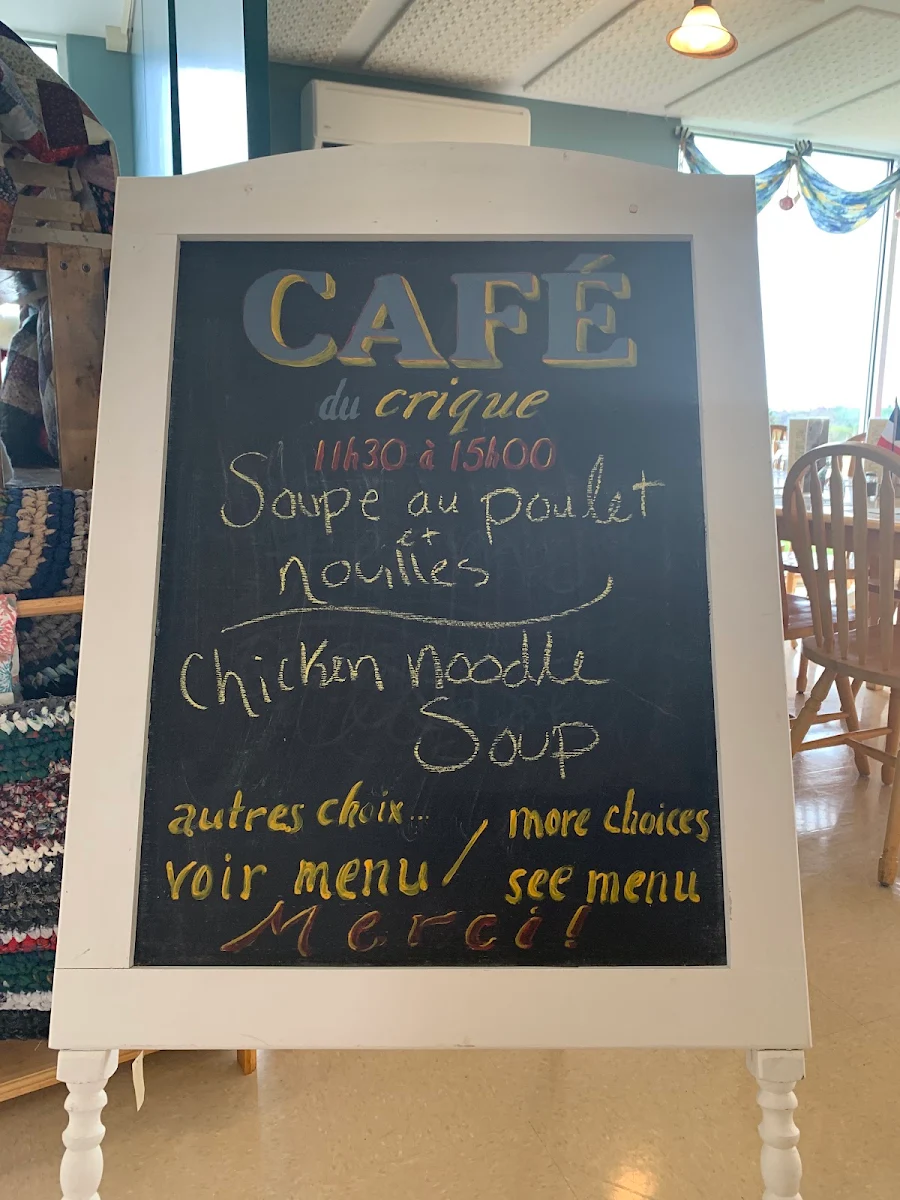 CAFÉ
du crique
11h30 à 15h00
Soupe au poulet
et
nouilles
Chicken noodle
Soup
autres choix... / more choices
voir menu see menu
Merci!